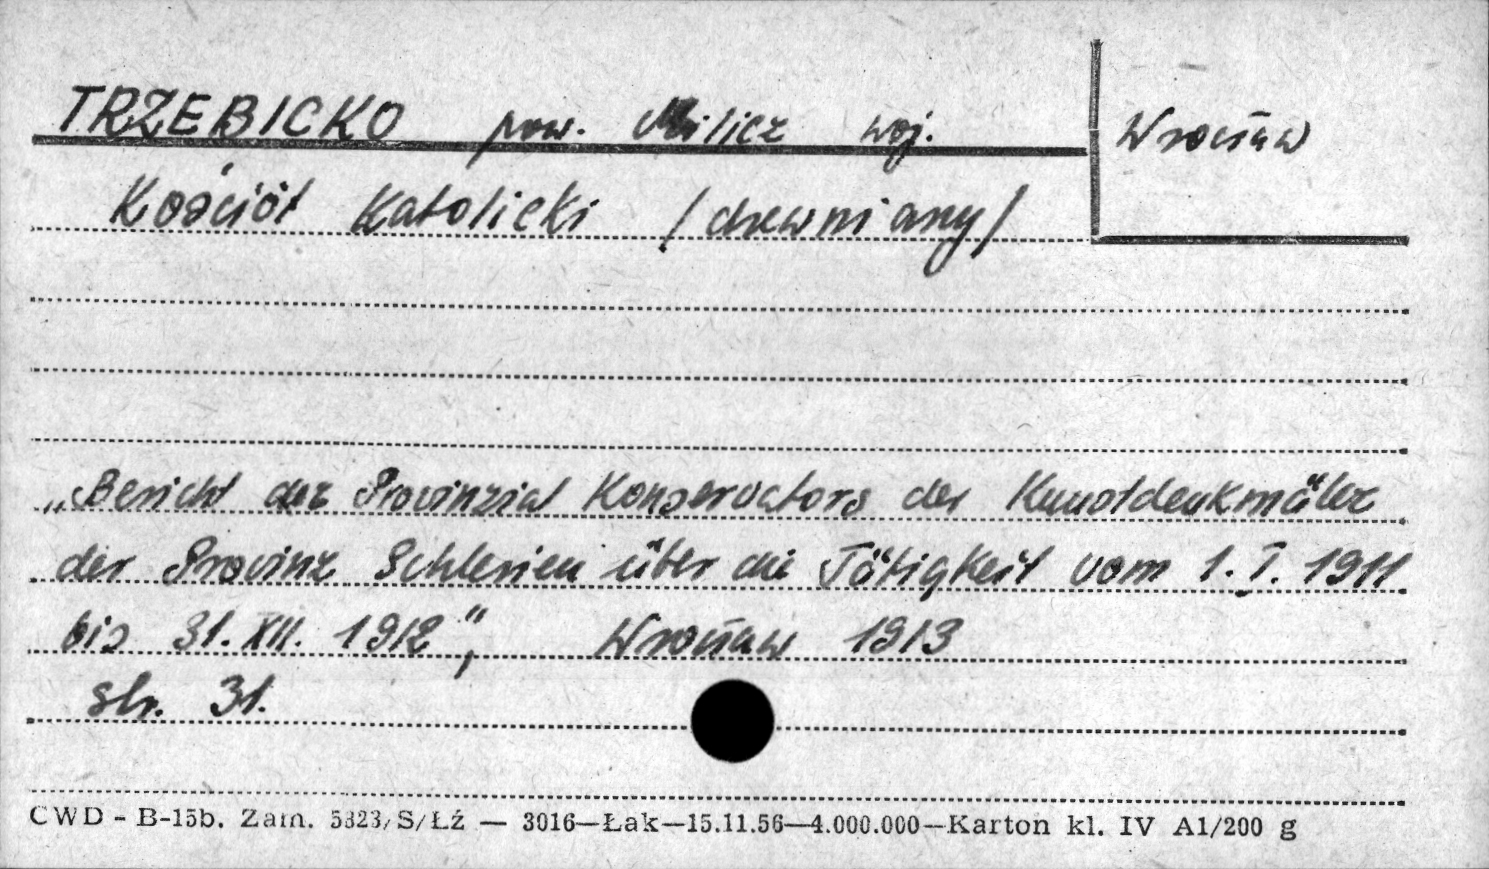 TRZEBICKO pow. Milicz woj. Wrocław
Kościół Katolicki /drewniany/
„Bericht des Provinzial Konservators der Kunstdenkmäler
der Provinz Schlesien über die Tätigkeit vom 1. I. 1911
bis 31. XII. 1912", Wrocław 1913
str. 31.
CWD - B-15b. Zam. 5323/S/Łź — 3016—Łak—15.11.56—4.000.000—Karton kl. IV A1/200 g